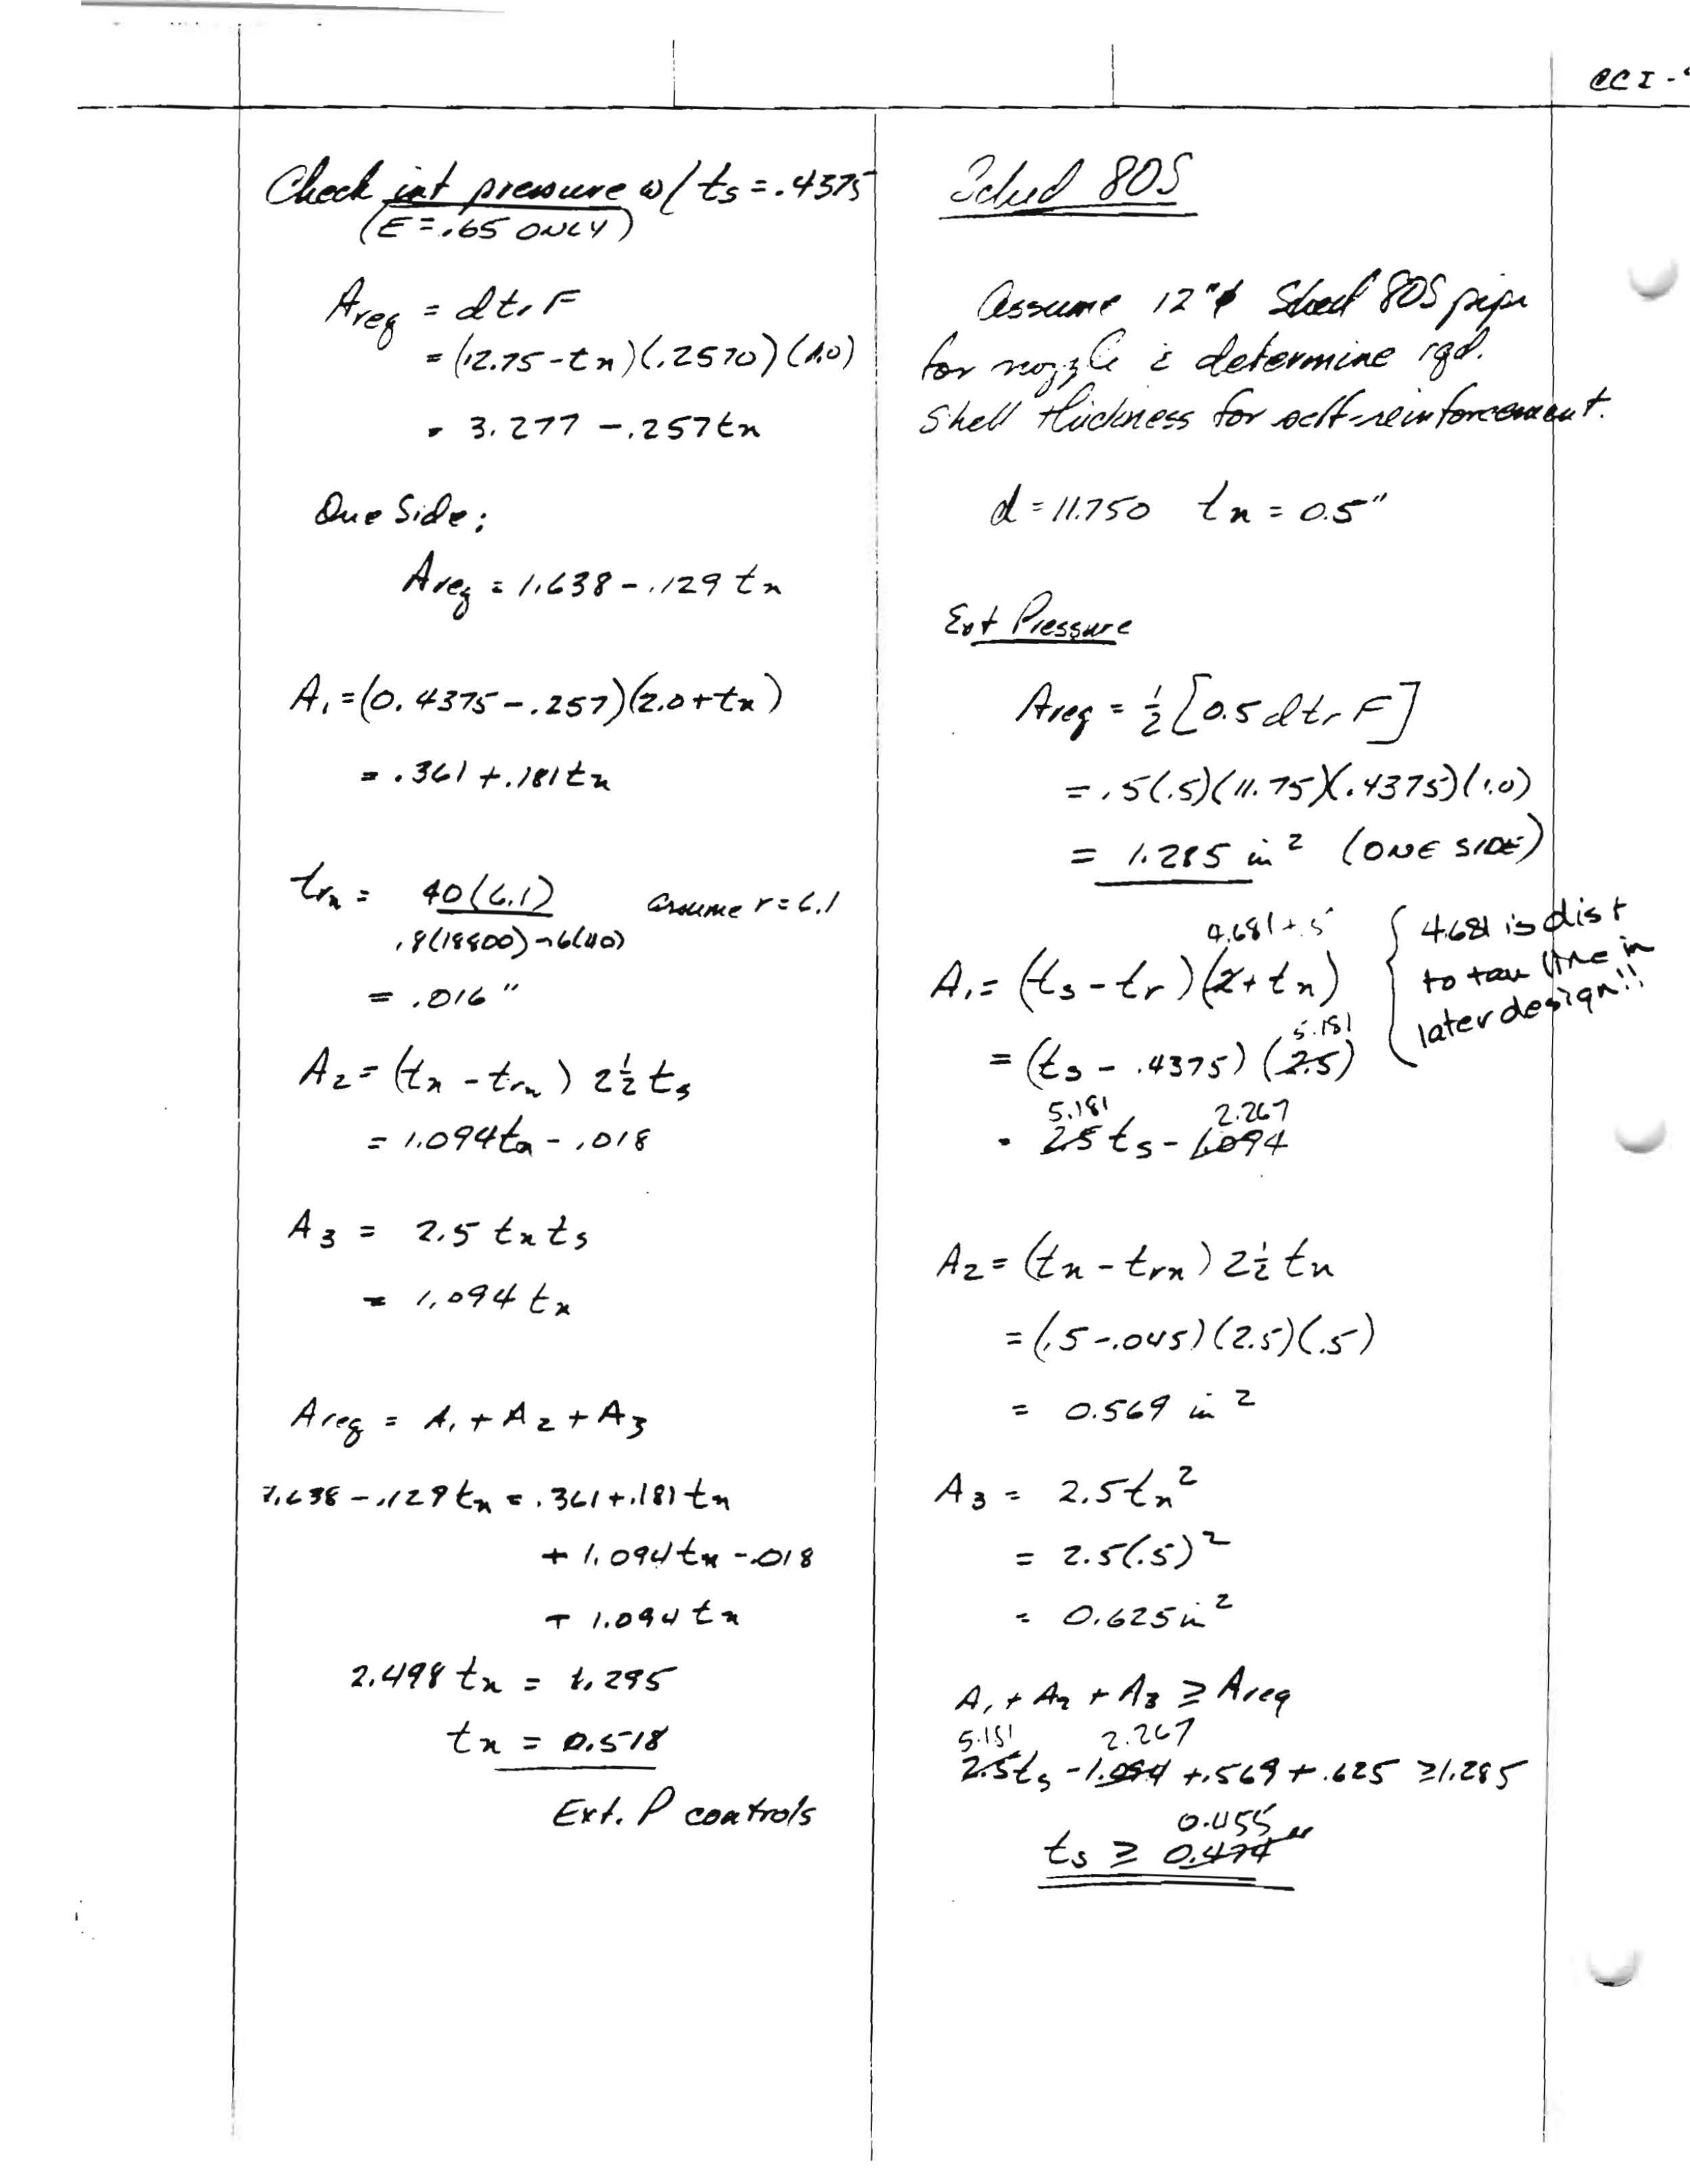 CCI-
Check int pressure w/ ts = .4375
(E = .65 ONLY)
Areq = dtrF
= (12.75 - tn)(.2570)(1.0)
= 3.277 - .257tn
One Side:
Areq = 1.638 - .129 tn
A1 = (0.4375 - .257)(2.0 + tn)
= .361 + .181tn
trn = 40(6.1) assume r = 6.1
.8(18800) - .6(40)
= .016"
A2 = (tn - trn) 2½ ts
= 1.094tn - .018
A3 = 2.5 tn ts
= 1.094 tn
Areq = A1 + A2 + A3
1.638 - .129 tn = .361 + .181 tn
+ 1.094tn - .018
+ 1.094 tn
2.498 tn = 1.295
tn = 0.518
Ext. P controls
Sched 80S
Assume 12"ϕ Sched 80S pipe
for nozzle & determine rqd.
Shell thickness for self-reinforcement.
d = 11.750 tn = 0.5"
Ext Pressure
Areq = ½ [0.5 dtr F]
= .5(.5)(11.75)(.4375)(1.0)
= 1.285 in² (ONE SIDE)
4.681 + .5
A1 = (ts - tr)(2 + tn)
{ 4.681 is dist
to tan line in
later design!!
5.181
= (ts - .4375)(2.5)
5.181 2.267
= 2.5 ts - 1.094
A2 = (tn - trn) 2½ tn
= (.5 - .045)(2.5)(.5)
= 0.569 in²
A3 = 2.5tn²
= 2.5(.5)²
= 0.625 in²
A1 + A2 + A3 ≥ Areq
5.181 2.267
2.5ts - 1.094 + .569 + .625 ≥ 1.285
0.455
ts ≥ 0.474"